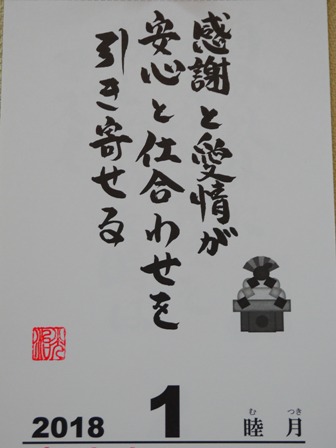 感謝と愛情が
安心と仕合わせを
引き寄せる
2018 1 睦月
むつき